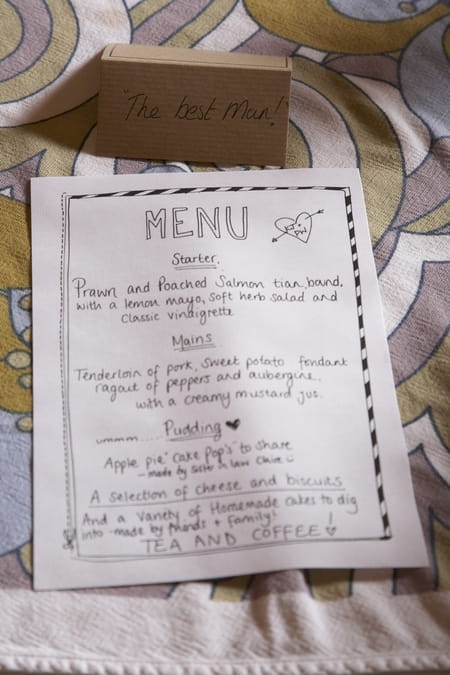 "The best Man!"
MENU
Starter.
Prawn and Poached Salmon tian, bound.
with a lemon mayo, soft herb salad and
Classic vinaigrette
Mains
Tenderloin of pork, Sweet potato fondant
ragout of peppers and aubergine.
with a creamy mustard jus.
Pudding
ummm.....
Apple pie "cake Pop's" to share
- made by Sister in law Claire
A selection of cheese and biscuits
And a variety of Homemade cakes to dig
into - made by friends + Family!
TEA AND COFFEE!